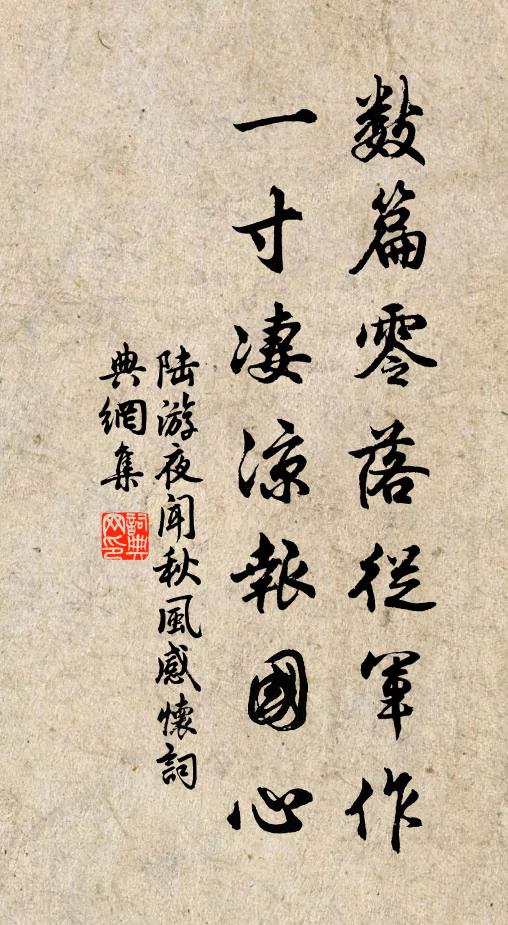 数篇零落從軍作
一寸凄涼報國心
陆游夜闻秋風感懷詞
典網集
詞典
网印